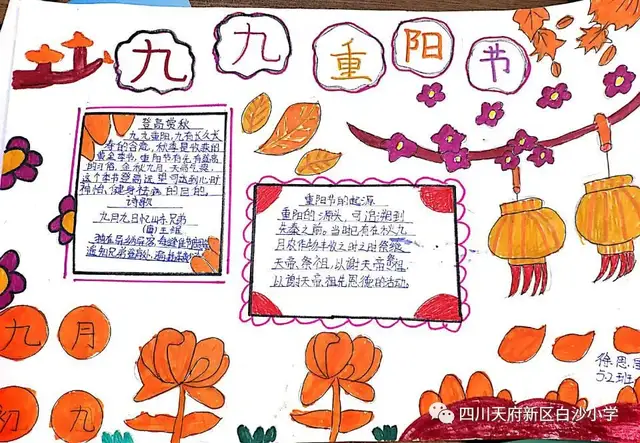 九九重阳节
登高赏秋
九九重阳,九有长久长
寿的含意,秋季是收获的
黄金季节,重阳节有
金秋九月,天高气爽,
这个季节登高远望可达到心旷
神怡、健身祛病的目的。
诗歌
九月九日忆山东兄弟
(唐)王维
独在异乡为异客
遥知兄弟登高处
重阳节的起源
重阳的源头,可追溯到
先秦之前。当时已有在秋九
月农作物丰收之时之时祭飨
天帝、祭祖,以谢天帝
以谢天帝、祖先恩德的活动。
九月
初九
徐恩
5.2班
四川天府新区白沙小学